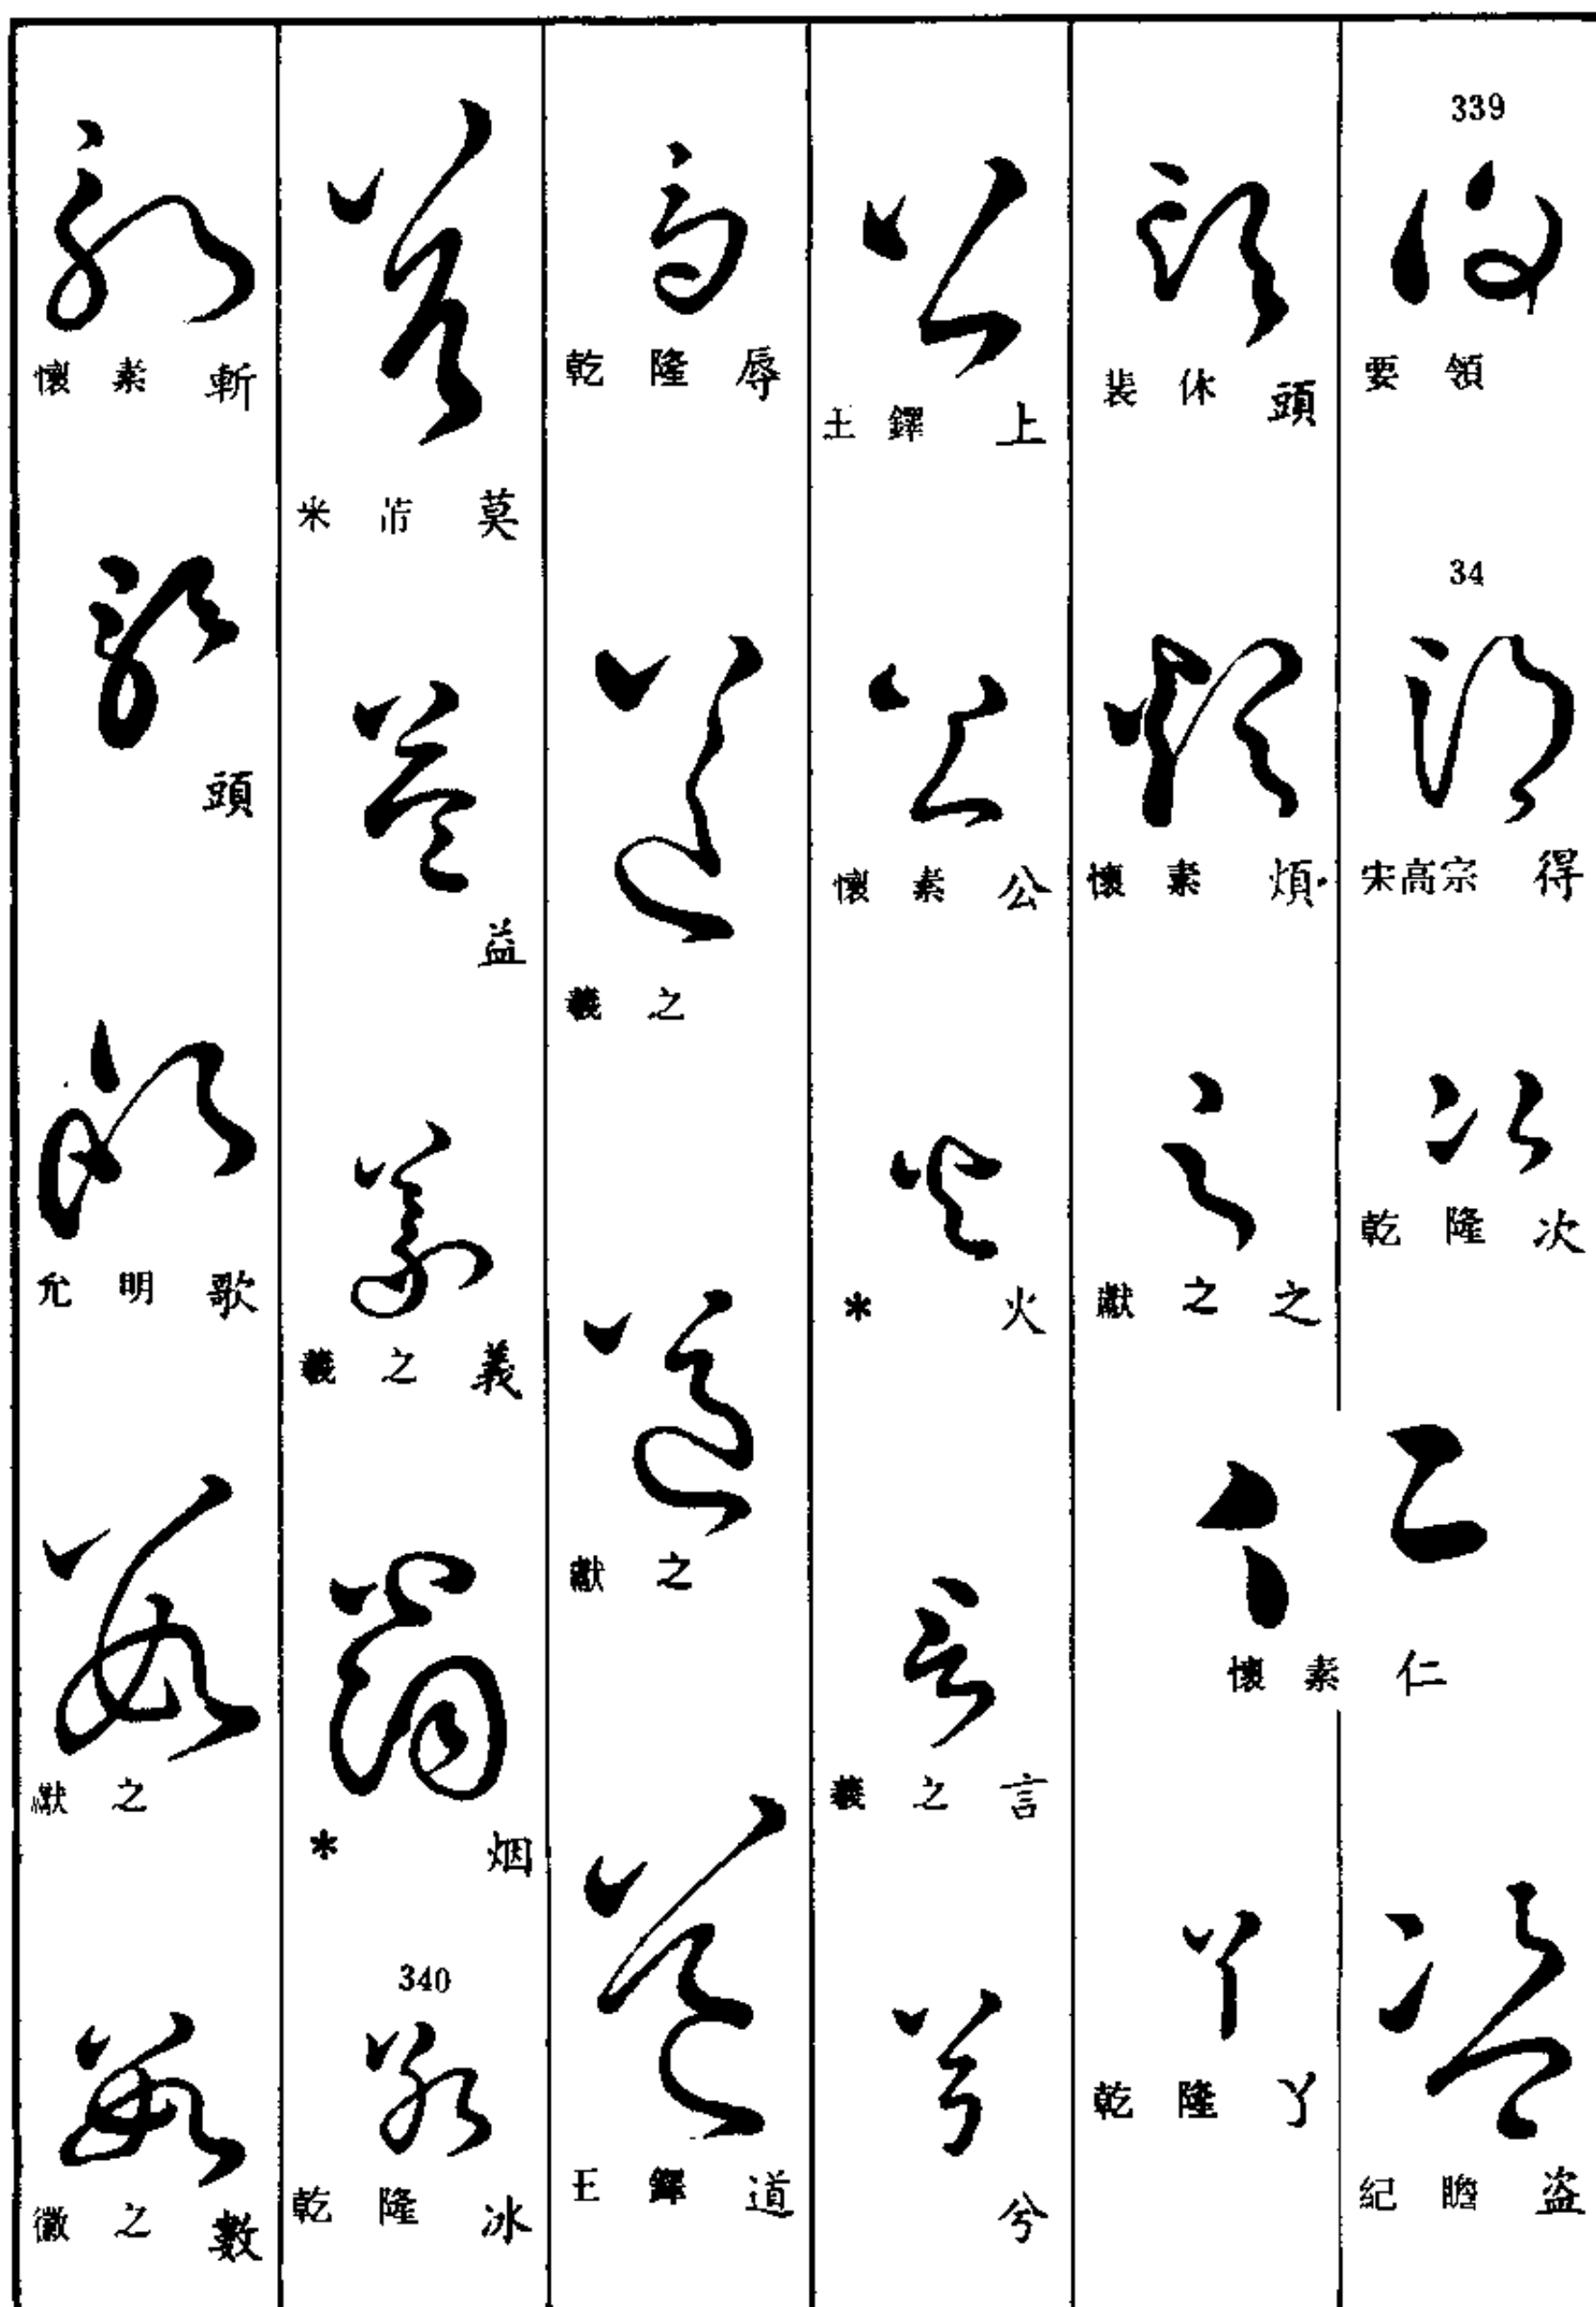 339
要領
34
宋高宗 得
乾隆 次
懷素 仁
紀瞻 盗
裴休 頭
懷素 煩
獻之 之
乾隆 丫
王鐸 上
懷素 公
* 火
羲之 言
兮
乾隆 辱
羲之
獻之
王鐸 道
米芾 莫
益
羲之 義
* 烟
340
乾隆 冰
懷素 斬
頭
允明 歌
獻之
徽之 數